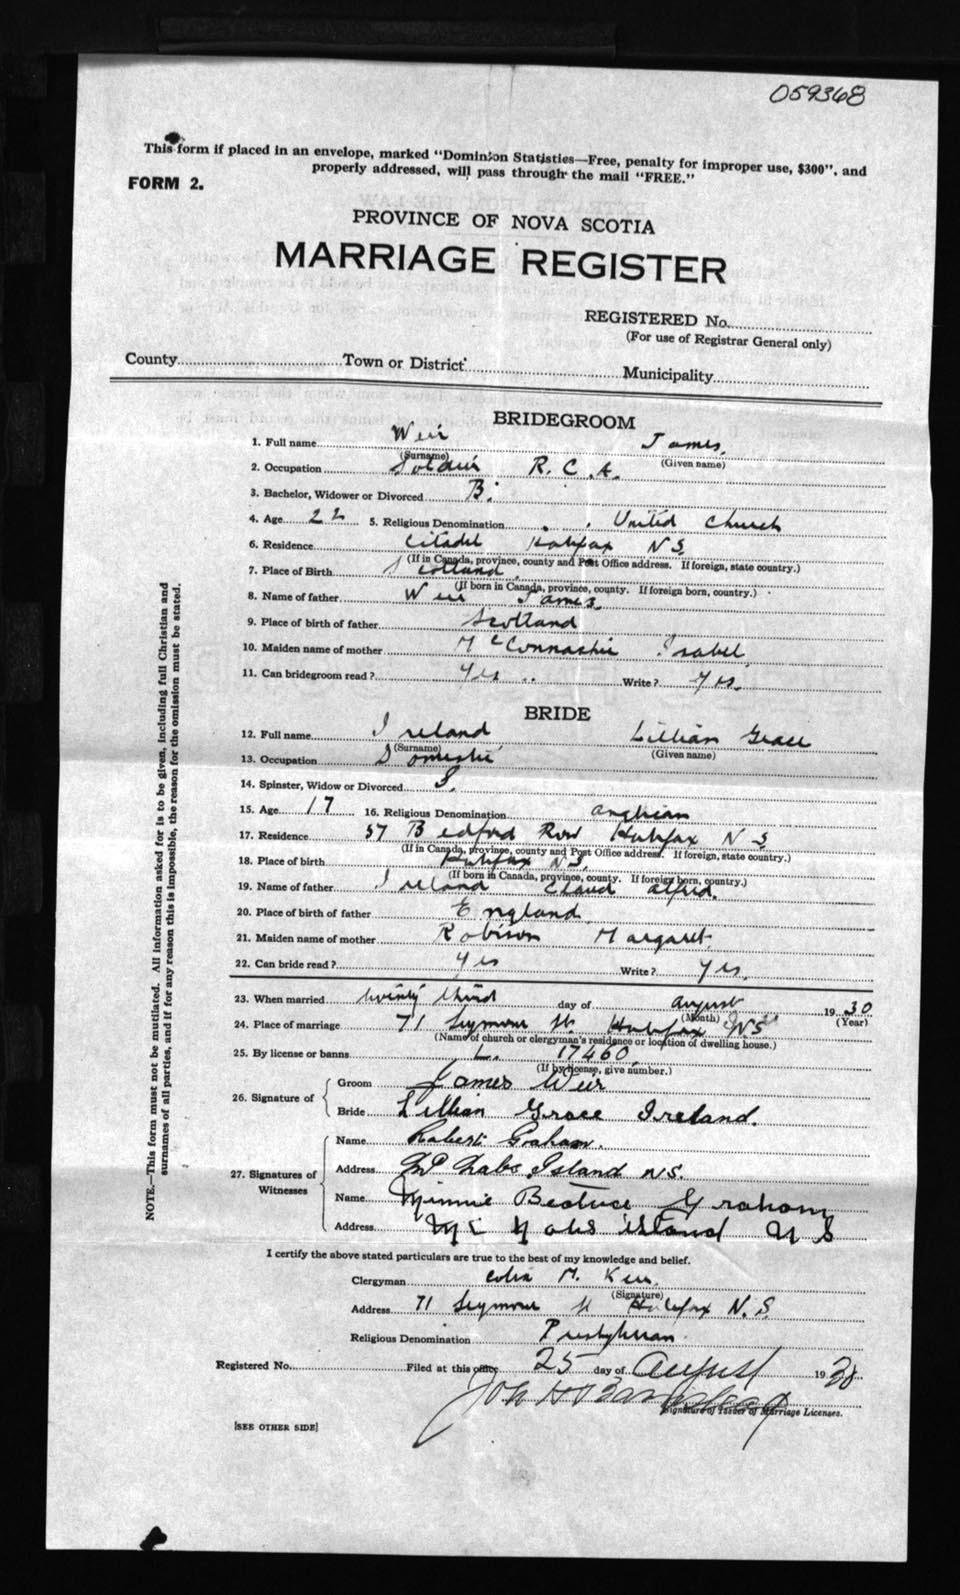 059368
This form if placed in an envelope, marked "Dominion Statistics—Free, penalty for improper use, $300", and
properly addressed, will pass through the mail "FREE."
FORM 2.
PROVINCE OF NOVA SCOTIA
MARRIAGE REGISTER
REGISTERED No.
(For use of Registrar General only)
County Town or District Municipality
BRIDEGROOM
1. Full name Weir James.
(Surname) (Given name)
2. Occupation Soldier R. C. A.
3. Bachelor, Widower or Divorced B.
4. Age 22 5. Religious Denomination United Church
6. Residence Citadel Halifax N S.
(If in Canada, province, county and Post Office address. If foreign, state country.)
7. Place of Birth Scotland
(If born in Canada, province, county. If foreign born, country.)
8. Name of father Weir James.
9. Place of birth of father Scotland
10. Maiden name of mother Isabel
11. Can bridegroom read? Yes Write? Yes.
BRIDE
12. Full name Ireland Lillian Grace
(Surname) (Given name)
13. Occupation Domestic
14. Spinster, Widow or Divorced S.
15. Age 17 16. Religious Denomination Anglican
17. Residence 57 Bedford Row Halifax N S
(If in Canada, province, county and Post Office address. If foreign, state country.)
18. Place of birth Halifax N S.
(If born in Canada, province, county. If foreign born, country.)
19. Name of father Ireland Claud Alfred.
20. Place of birth of father England
21. Maiden name of mother Robison Margaret.
22. Can bride read? Yes Write? Yes.
23. When married twenty third day of August 1930
(Month) (Year)
24. Place of marriage 71 Seymour St. Halifax N S
(Name of church or clergyman's residence or location of dwelling house.)
25. By license or banns L. 17460
(If by license, give number.)
26. Signature of Groom James Weir
Bride Lillian Grace Ireland.
27. Signatures of Witnesses Name Robert Graham.
Address Mc Nabs Island N.S.
Name Minnie Beatrice Graham
Address Mc Nabs island N S
I certify the above stated particulars are true to the best of my knowledge and belief.
Clergyman Colin M. Kerr.
(Signature)
Address 71 Seymour St Halifax N. S.
Religious Denomination Presbyterian
Registered No. Filed at this office 25 day of August 1930
Signature of Issuer of Marriage Licenses.
[SEE OTHER SIDE]
NOTE.—This form must not be mutilated. All information asked for is to be given, including full Christian and
surnames of all parties, and if for any reason this is impossible, the reason for the omission must be stated.